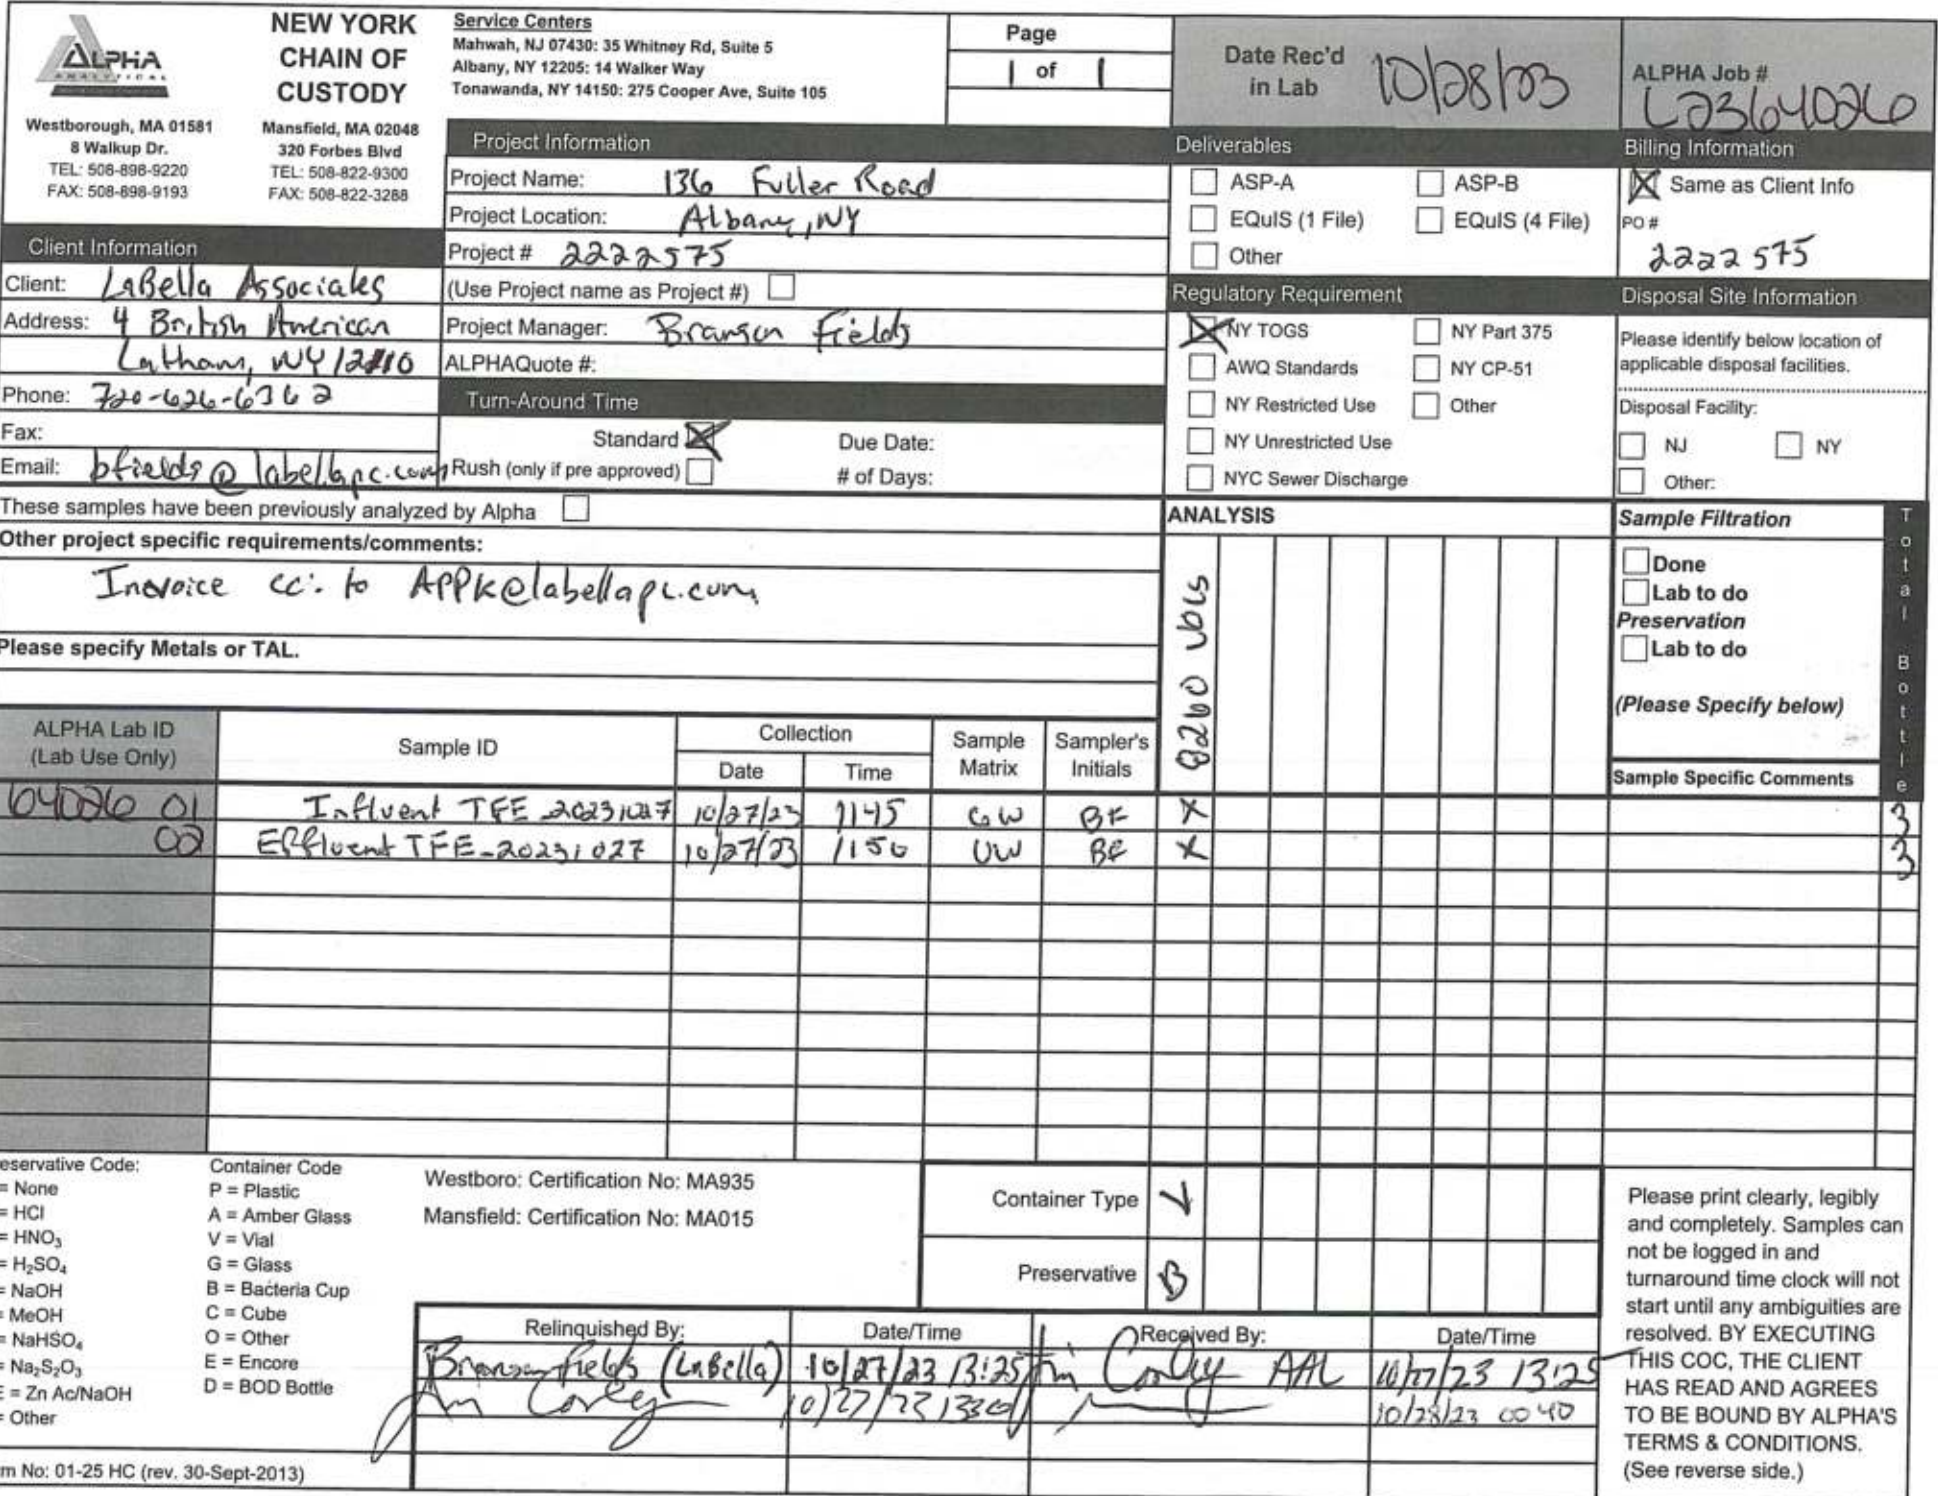 ALPHA
ANALYTICAL
Westborough, MA 01581
8 Walkup Dr.
TEL: 508-898-9220
FAX: 508-898-9193
NEW YORK
CHAIN OF
CUSTODY
Mansfield, MA 02048
320 Forbes Blvd
TEL: 508-822-9300
FAX: 508-822-3288
Service Centers
Mahwah, NJ 07430: 35 Whitney Rd, Suite 5
Albany, NY 12205: 14 Walker Way
Tonawanda, NY 14150: 275 Cooper Ave, Suite 105
Page
1 of 1
Date Rec'd
in Lab 10/28/23
ALPHA Job #
L2364026
Project Information
Project Name: 136 Fuller Road
Project Location: Albany, NY
Project # 2222575
(Use Project name as Project #)
Project Manager: Branson Fields
ALPHAQuote #:
Deliverables
ASP-A ASP-B
EQuIS (1 File) EQuIS (4 File)
Other
Billing Information
Same as Client Info
PO #
2222575
Client Information
Client: LaBella Associates
Address: 4 British American
Latham, NY 12110
Phone: 720-626-6362
Fax:
Email: bfields@labellapc.com
Turn-Around Time
Standard Due Date:
Rush (only if pre approved) # of Days:
Regulatory Requirement
NY TOGS NY Part 375
AWQ Standards NY CP-51
NY Restricted Use Other
NY Unrestricted Use
NYC Sewer Discharge
Disposal Site Information
Please identify below location of
applicable disposal facilities.
Disposal Facility:
NJ NY
Other:
These samples have been previously analyzed by Alpha
Other project specific requirements/comments:
Invoice cc: to APPK@labellapc.com
Please specify Metals or TAL.
ANALYSIS
8260 VOCs
Sample Filtration
Done
Lab to do
Preservation
Lab to do
(Please Specify below)
Total Bottle
ALPHA Lab ID
(Lab Use Only)
Sample ID
Collection
Date Time
Sample
Matrix
Sampler's
Initials
Sample Specific Comments
64026 01 Influent TFE_20231027 10/27/23 1145 GW BF X 3
02 Effluent TFE_20231027 10/27/23 1150 GW BF X 3
eservative Code:
= None
= HCl
= HNO3
= H2SO4
= NaOH
= MeOH
= NaHSO4
= Na2S2O3
E = Zn Ac/NaOH
= Other
Container Code
P = Plastic
A = Amber Glass
V = Vial
G = Glass
B = Bacteria Cup
C = Cube
O = Other
E = Encore
D = BOD Bottle
Westboro: Certification No: MA935
Mansfield: Certification No: MA015
Container Type V
Preservative B
Relinquished By: Date/Time Received By: Date/Time
Branson Fields (LaBella) 10/27/23 13:25 Jim Corley AAL 10/27/23 13:25
Jim Corley 10/27/23 1330 10/28/23 0040
Please print clearly, legibly
and completely. Samples can
not be logged in and
turnaround time clock will not
start until any ambiguities are
resolved. BY EXECUTING
THIS COC, THE CLIENT
HAS READ AND AGREES
TO BE BOUND BY ALPHA'S
TERMS & CONDITIONS.
(See reverse side.)
m No: 01-25 HC (rev. 30-Sept-2013)